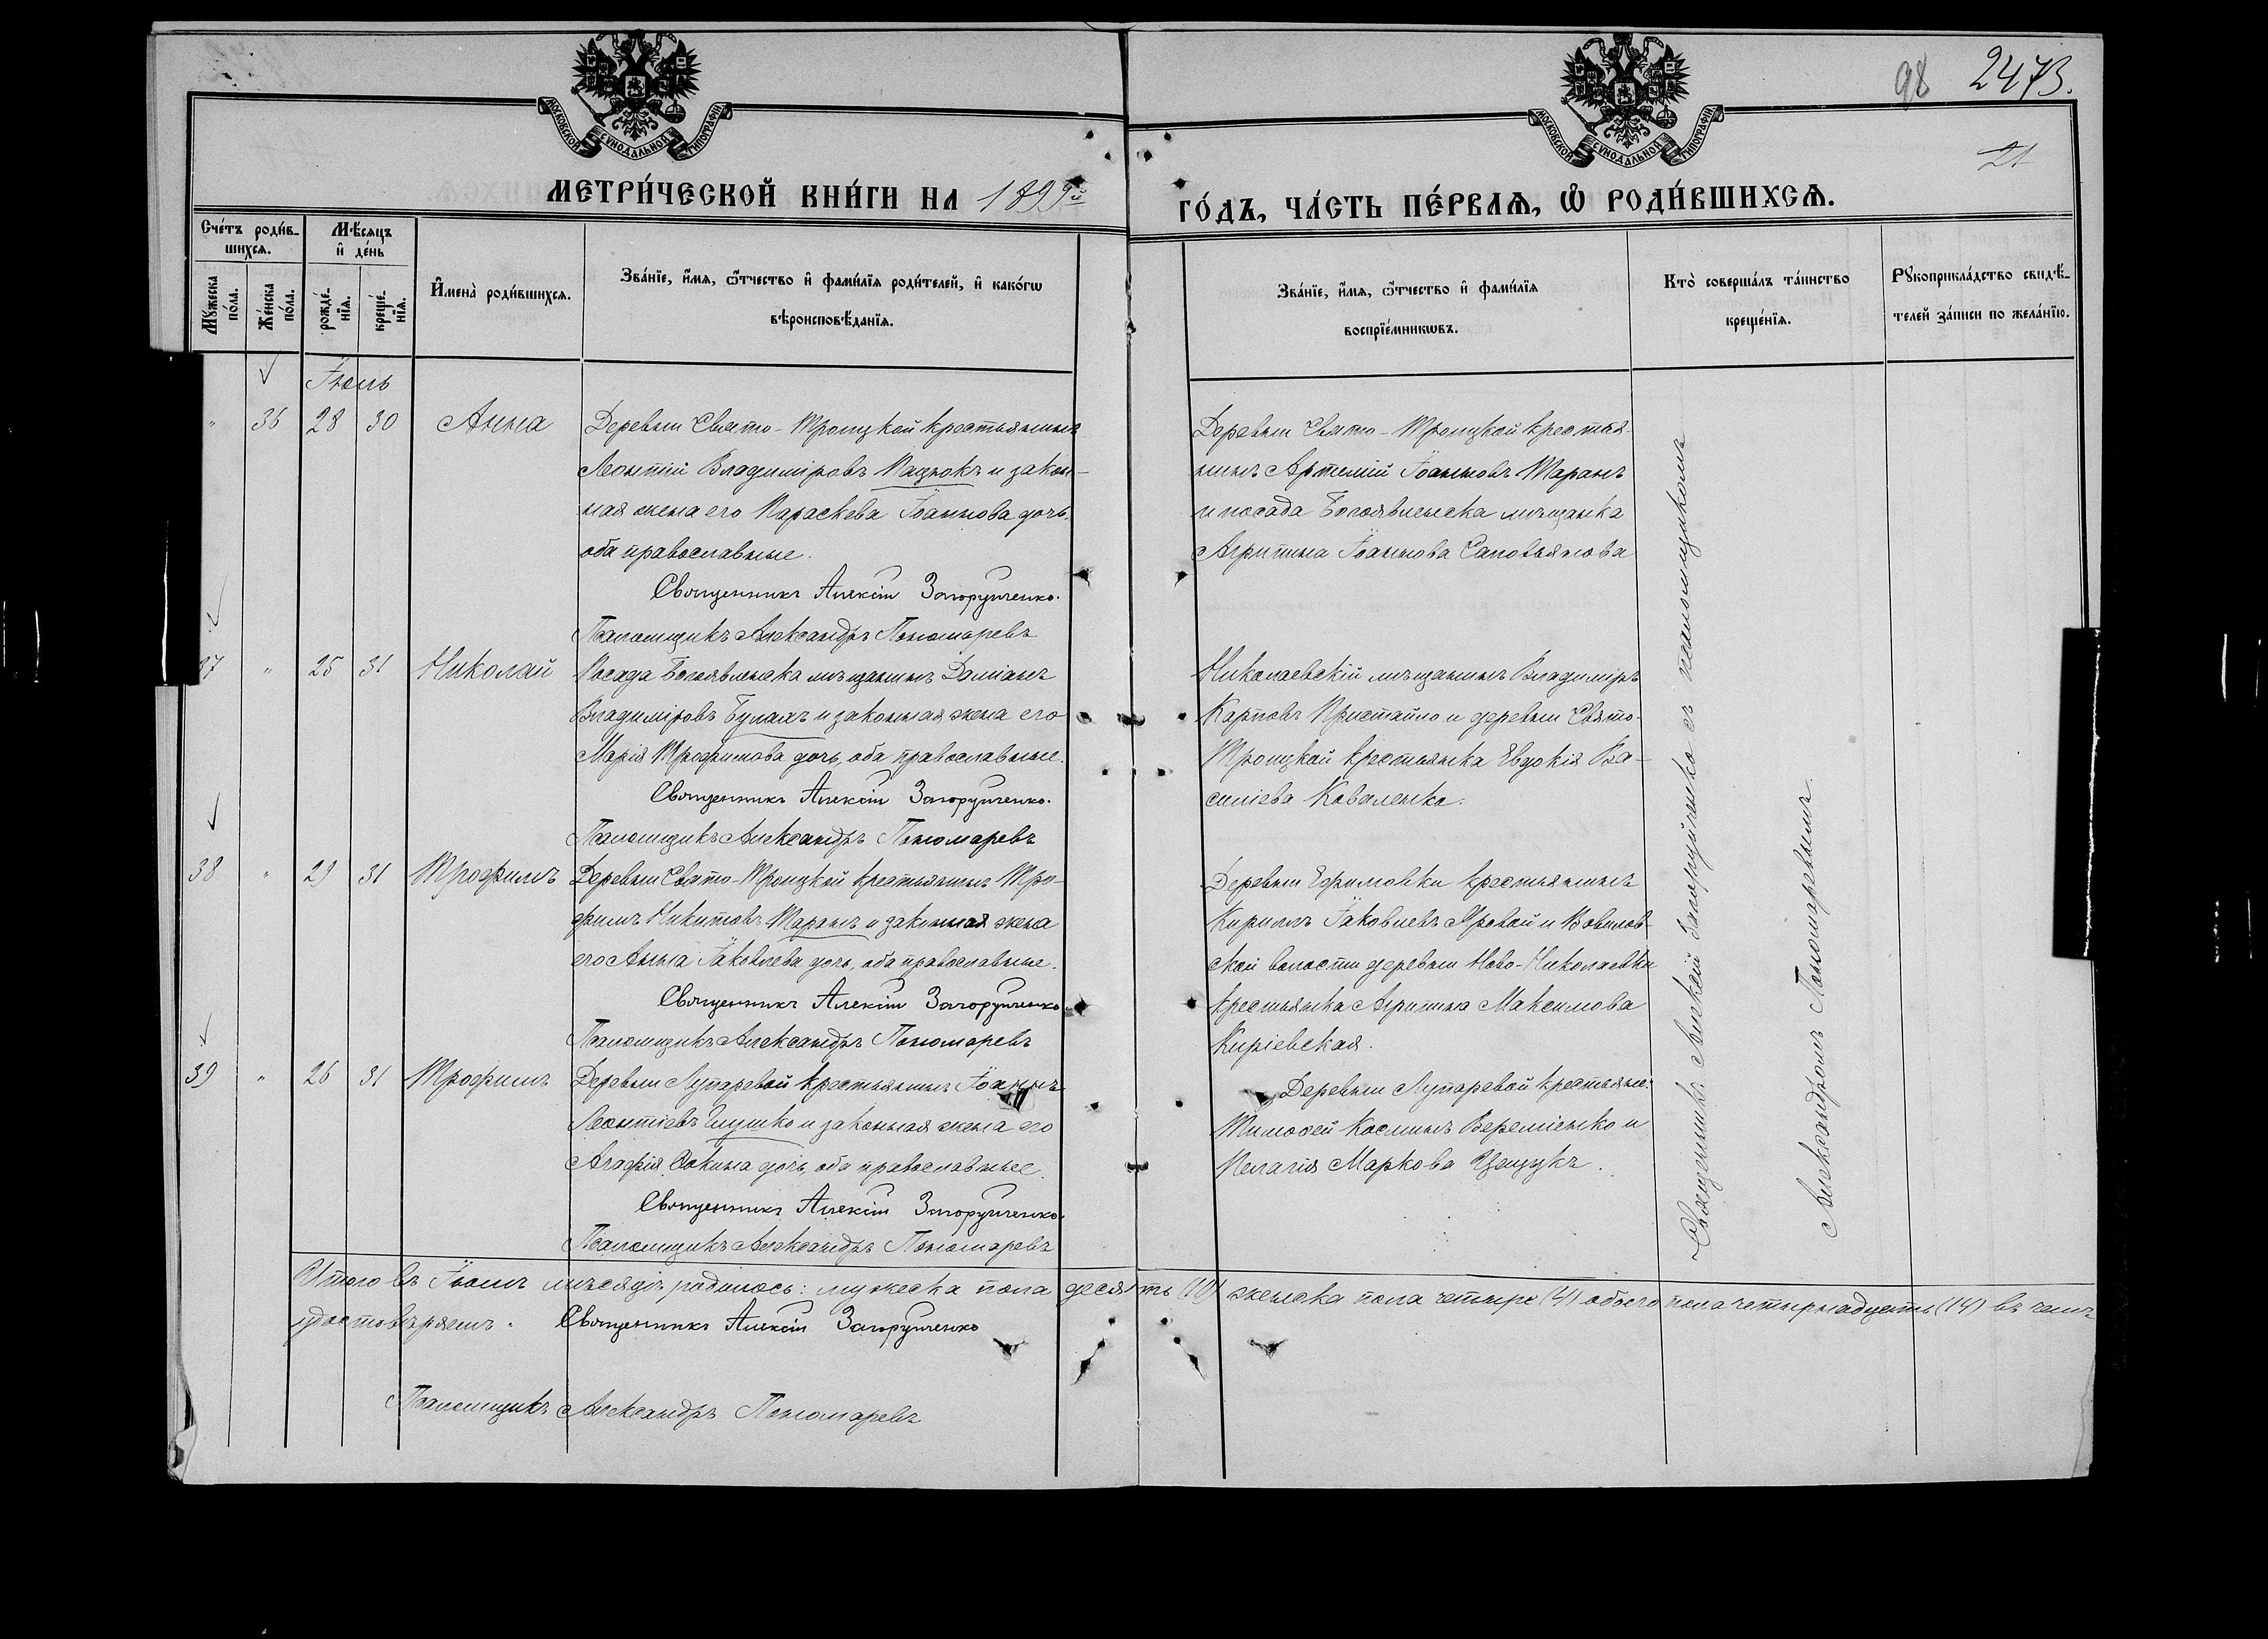 98 2473.
21
МОСКОВСКОЙ СУНОДАЛЬНОЙ ТИПОГРАФІИ
МОСКОВСКОЙ СУНОДАЛЬНОЙ ТИПОГРАФІИ
МЕТРИ́ЧЕСКОЙ КНИ́ГИ НА 1899й ГО́ДЪ, ЧА́СТЬ ПЕ́РВАѦ, Ѡ РОДИ́ВШИХСѦ.
Сче́тъ роди́в-
шихсѧ.
Мѣ́сѧцъ
и҆ де́нь
Мꙋ́жеска
по́ла.
Же́нска
по́ла.
рожде́-
нїѧ.
креще́-
нїѧ.
И҆мена̀ роди́вшихсѧ.
Зва́нїе, и҆́мѧ, ѻ҆́тчество и҆ фами́лїѧ роди́телей, и҆ како́гѡ
вѣроисповѣ́данїѧ.
Зва́нїе, и҆́мѧ, ѻ҆́тчество и҆ фами́лїѧ
воспрїе́мникѡвъ.
Кто̀ соверша́лъ та́инство
креще́нїѧ.
Рꙋкоприкла́дство свидѣ́-
телей за́писи по жела́нїю.
Іюль
" 36 28 30 Анна
Деревни Свято-Троицкой крестьянинъ
Леонтій Владиміровъ Пацюкъ и закон-
ная жена его Параскева Іоаннова дочь,
оба православные.
Священникъ Алексій Запоруйченко.
Псаломщикъ Александръ Пономаревъ
Деревни Свято-Троицкой крестья-
нинъ Артемій Іоанновъ Таранъ
и посада Богоявленска мѣщанка
Агрипина Іоаннова Саповьянова
37 " 25 31 Николай
Посада Богоявленска мѣщанинъ Даміанъ
Владиміровъ Булахъ и законная жена его
Марія Трофимова дочь, оба православные.
Священникъ Алексій Запоруйченко.
Псаломщикъ Александръ Пономаревъ
Николаевскій мѣщанинъ Владиміръ
Карповъ Пристайло и деревни Свято-
Троицкой крестьянка Евдокія Ва-
силіева Коваленко.
38 " 29 31 Трофимъ
Деревни Свято-Троицкой крестьянинъ Тро-
фимъ Никитовъ Таранъ и законная жена
его Анна Іаковлева дочь, оба православные.
Священникъ Алексій Запоруйченко
Псаломщикъ Александръ Пономаревъ
Деревни Ефимовки крестьянинъ
Кириллъ Іаковлевъ Яровой и Вавилов-
ской волости деревни Ново-Николаевки
крестьянка Агрипина Максимова
Киріевская.
39 " 26 31 Трофимъ
Деревни Лупаревой крестьянинъ Іоаннъ
Леонтіевъ Глушко и законная жена его
Агафія Фокина дочь, оба православные.
Священникъ Алексій Запоруйченко.
Псаломщикъ Александръ Пономаревъ
Деревни Лупаревой крестьяне:
Тимоѳей Косминъ Веремѣенко и
Пелагія Маркова
Священникъ Алексій Запоруйченко съ псаломщикомъ
Александромъ Пономаревымъ.
Итого въ Іюлѣ мѣсяцѣ родилось: мужеска пола десять (10) женска пола четыре (4) обоего пола четырнадцать (14) въ чемъ
удостовѣряемъ. Священникъ Алексій Запоруйченко
Псаломщикъ Александръ Пономаревъ